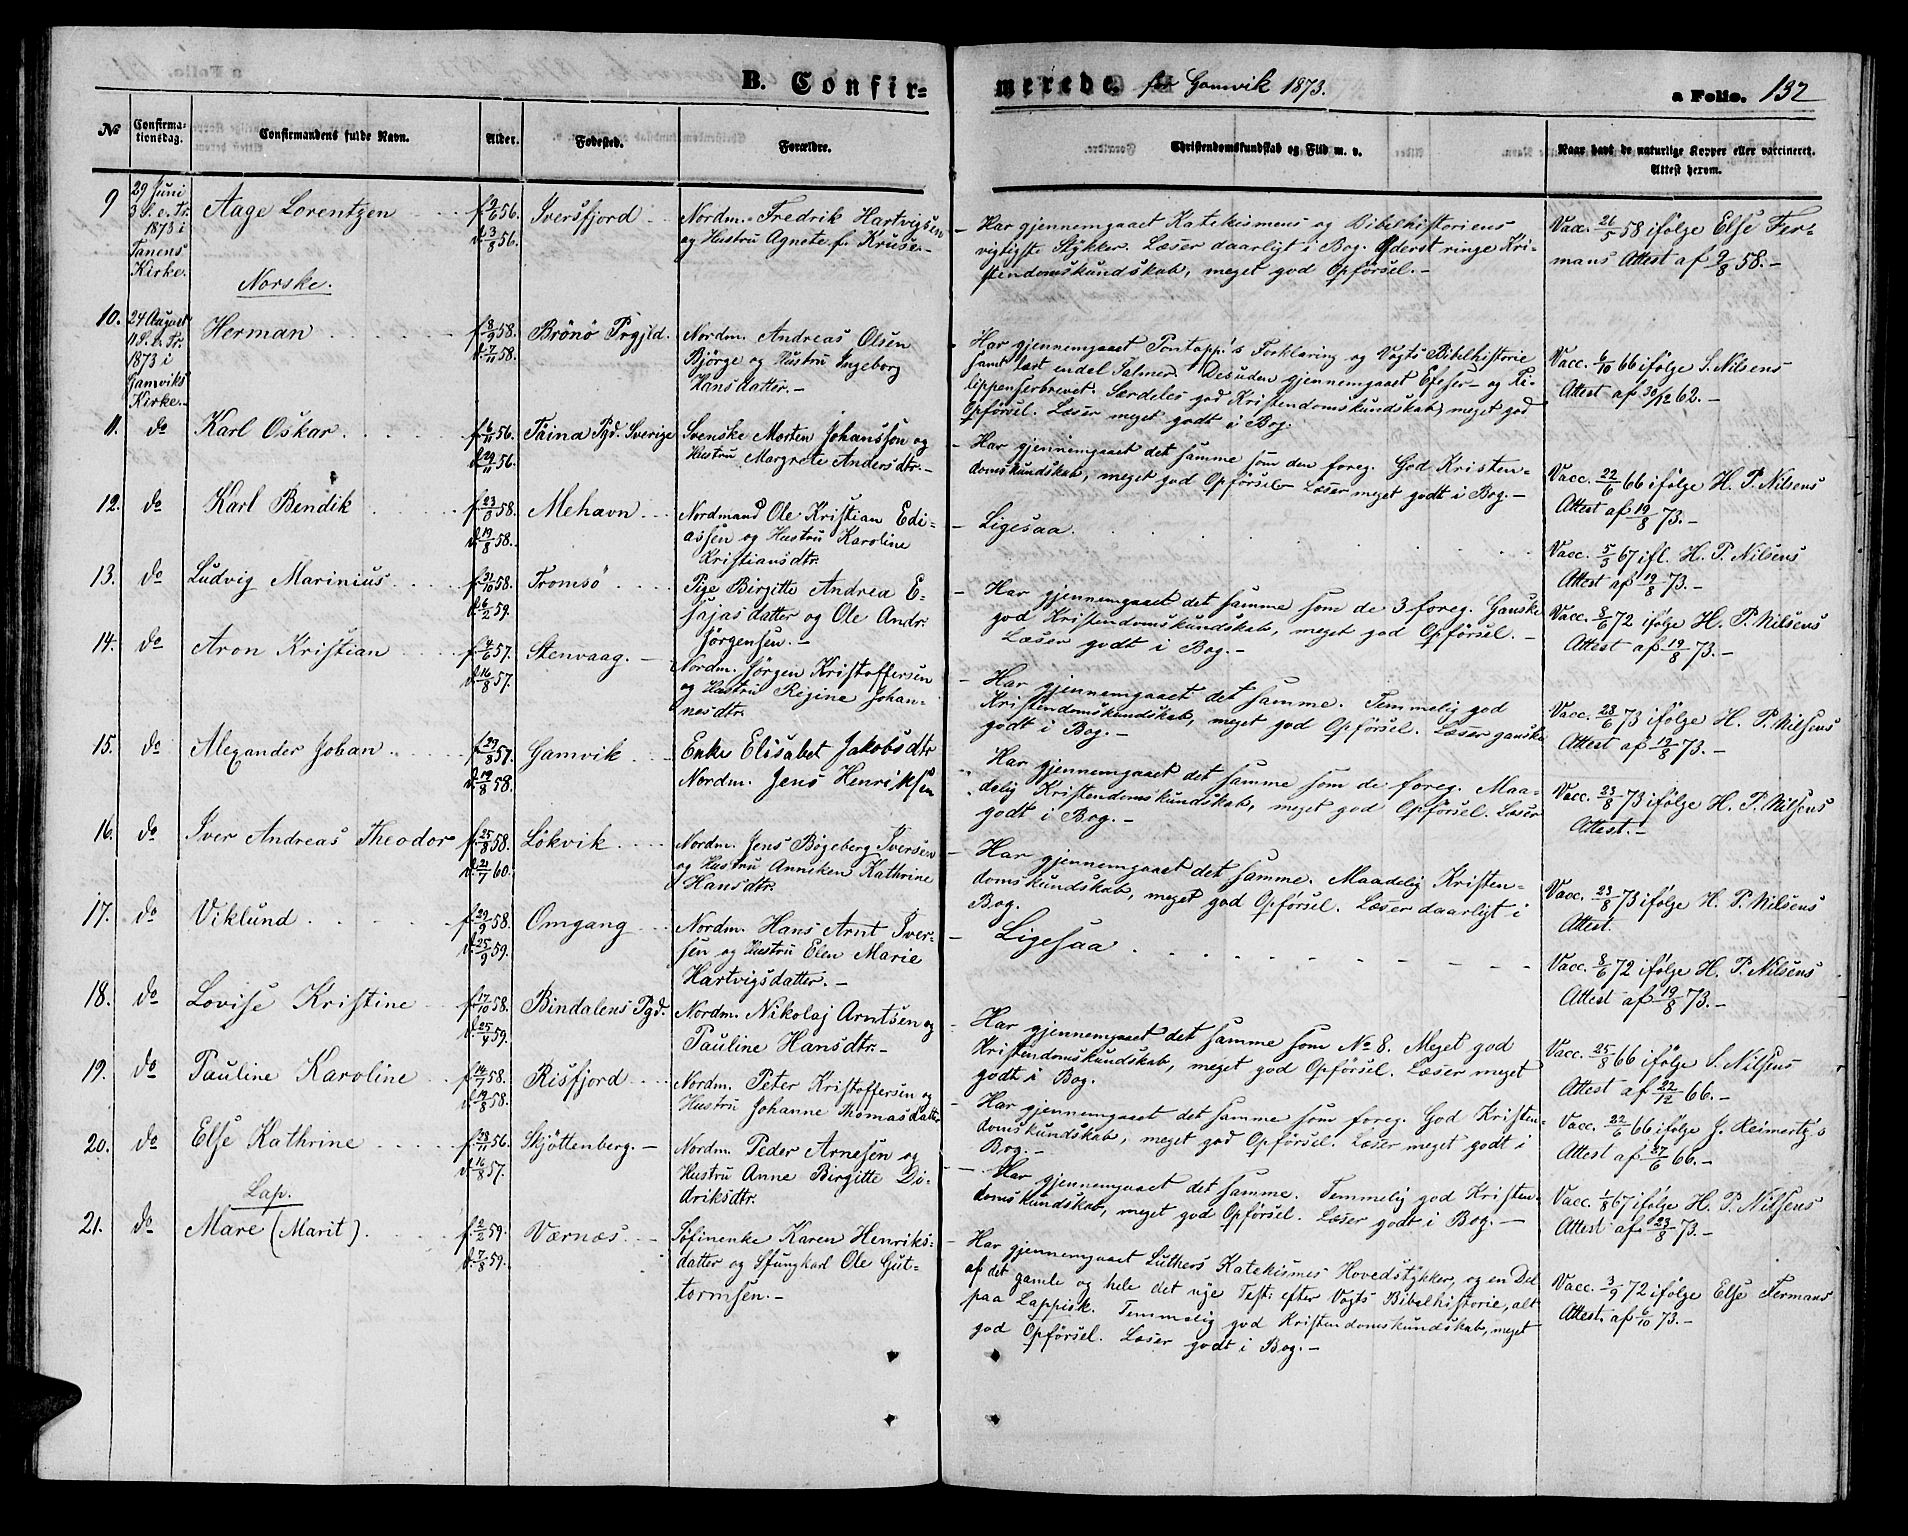 B. Confir-
merede. for Gamvik 1873.
a Folio. 132
No
Confirma-
tionsdag.
Confirmandens fulde Navn.
Alder.
Fødested.
Forældre.
Christendomskundskab og Flid m. v.
Naar havt de naturlige Kopper eller vaccineret.
Attest herom.
9
29 Juni
3 S. e. Tr.
1873 i
Tanens
Kirke.
Aage Lorentzen
f. 9/6 56.
d. 3/8 56.
Iversfjord
Nordm. Fredrik Hartvigsen
og Hustru Agnete f. Kruse.
Har gjennemgaaet Katekismens og Bibelhistoriens
vigtigste Stykker. Læser daarligt i Bog. Yderst ringe Kri-
stendomskundskab, meget god Opførsel.
Vacc. 26/5 58 ifølge Else Fer-
mans Attest af 9/8 58.
Norske.
10.
24 August
11 S. e. Tr.
1873 i
Gamviks
Kirke.
Herman
f. 8/9 58.
d. 7/11 58.
Brönö Prgjld.
Nordm. Andreas Olsen
Bjørge og Hustru Ingeborg
Hansdatter.
Har gjennemgaaet Pontopp.'s Forklaring og Vogts Bibelhistorie
samt lært endel Salmer. Desuden gjennemgaaet Efeser- og Fi-
lippenserbrevet. Særdeles god Kristendomskundskab, meget god
Opførsel. Læser meget godt i Bog.
Vacc. 6/10 66 ifølge S. Nilsens
Attest af 30/12 62.
11.
do
Karl Oskar
f. 6/11 56.
d. 29/11 56.
Täina Pgd. Sverige
Svenske Morten Johanssøn og
Hustru Margrete Andersdtr.
Har gjennemgaaet det samme som den foreg. God Kristen-
domskundskab, meget god Opførsel. Læser meget godt i Bog.
Vacc. 22/6 66 ifølge H. P. Nilsens
Attest af 19/8 73.
12.
do
Karl Bendik
f. 23/3 58.
d. 19/8 58.
Mehavn
Nordmand Ole Kristian Edi-
assen og Hustru Karoline
Kristiansdtr.
Ligesaa.
Vacc. 5/3 67 ifl. H. P. Nilsens
Attest af 19/8 73.
13.
do
Ludvig Marinius
f. 31/10 58.
d. 6/2 59.
Tromsö
Pige Birgitte Andrea E-
sajasdatter og Ole Andr.
Jörgensen.
Har gjennemgaaet det samme som de 3 foreg. Ganske
god Kristendomskundskab, meget god Opførsel.
Læser godt i Bog.
Vacc. 8/6 72 ifølge H. P. Nilsens
Attest af 19/8 73.
14.
do
Aron Kristian
f. 4/6 57.
d. 16/8 57.
Stenvaag.
Nordm. Jörgen Kristoffersen
og Hustru Regine Johan-
nesdtr.
Har gjennemgaaet det samme. Temmelig god
Kristendomskundskab, meget god Opførsel. Læser ganske
godt i Bog.
Vacc. 28/6 73 ifølge H. P. Nilsens
Attest af 19/8 73.
15.
do
Alexander Johan
f. 29/8 57.
d. 19/8 58.
Gamvik
Enke Elisabet Jakobsdtr
Nordm. Jens Henriksen
Har gjennemgaaet det samme som de foreg. Maa-
delig Kristendomskundskab, meget god Opførsel. Læser
godt i Bog.
Vacc. 23/8 73 ifølge H. P. Nilsens
Attest.
16.
do
Iver Andreas Theodor
f. 25/8 58.
d. 21/7 60.
Lökvik
Nordm. Jens Bögeberg Iversen
og Hustru Anneken Kathrine
Hansdtr.
Har gjennemgaaet det samme. Maadelig Kristen-
domskundskab, meget god Opførsel. Læser daarligt i
Bog.
Vacc. 23/8 73 ifølge H. P. Nilsens
Attest.
17.
do
Viklund
f. 29/9 58.
d. 25/9 59.
Omgang
Nordm. Hans Arnt Iver-
sen og Hustru Elen Marie
Hartvigsdatter.
Ligesaa
Vacc. 8/6 72 ifølge H. P. Nilsens
Attest af 19/8 73.
18.
do
Lovise Kristine
f. 17/10 58.
d. 25/4 59.
Bindalens Pgd.
Nordm. Nikolaj Arntsen og
Pauline Hansdtr.
Har gjennemgaaet det samme som No 8. Meget god
Kristendomskundskab, meget god Opførsel. Læser meget
godt i Bog.
Vacc. 25/8 66 ifølge S. Nilsens
Attest af 22/12 66.
19.
do
Pauline Karoline
f. 14/7 58.
d. 19/8 58.
Risfjord
Nordm. Peter Kristoffersen og
Hustru Johanne Thomasdatter
Har gjennemgaaet det samme som foreg. God Kristen-
domskundskab, meget god Opførsel. Læser meget godt i
Bog.
Vacc. 22/6 66 ifølge J. Reimertz's
Attest af 27/6 66.
20.
do
Else Kathrine
f. 28/11 56.
d. 16/8 57.
Skjöttenberg.
Nordm. Peder Arnesen og
Hustru Anne Birgitte Di-
driksdtr.
Har gjennemgaaet det samme. Temmelig god Kristen-
domskundskab, meget god Opførsel. Læser godt i Bog.
Vacc. 1/8 67 ifølge H. P. Nilsens
Attest af 23/8 73.
Lap.
21.
do
Mare (Marit)
f. 2/2 59.
d. 7/8 59.
Værnæs
Söfinenke Karen Henriks-
datter og Sfungkarl Ole Gut-
tormsen.
Har gjennemgaaet Luthers Katekismes Hovedstykker, og en Del
af det gamle og hele det nye Test. efter Vogts Bibelhistorie, alt
paa Lappisk. Temmelig god Kristendomskundskab, meget
god Opførsel. Læser godt i Bog.
Vacc. 3/9 72 ifølge Else Fermans
Attest. af 6/10 73.